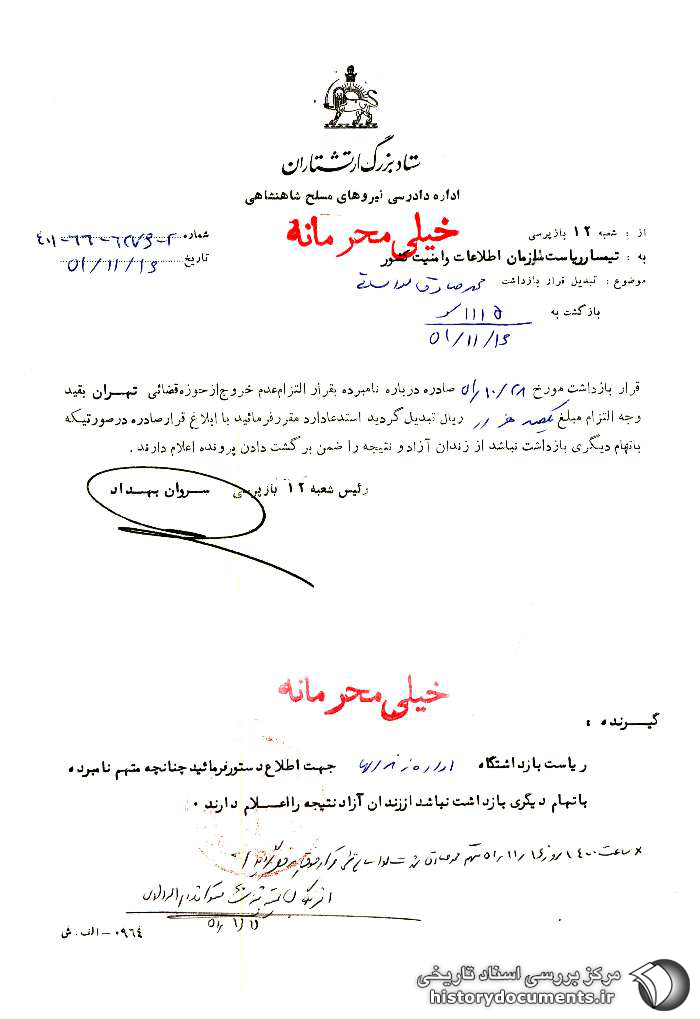 ستاد بزرگ ارتشتاران
اداره دادرسی نیروهای مسلح شاهنشاهی
خیلی محرمانه
از : شعبه ۱۲ بازپرسی
شماره
به : تیمسار ریاست سازمان اطلاعات و امنیت کشور
تاریخ ۵۱/۱۱/۱۶
موضوع : تبدیل قرار بازداشت محمد صادق
بازگشت به ۱۱۱۵
۵۱/۱۱/۱۶
قرار بازداشت مورخ ۵۱/۱۰/۲۸ صادره درباره نامبرده بقرار التزام عدم خروج از حوزه قضائی تهران بقید
وجه التزام مبلغ یکصد هزار ریال تبدیل گردید استدعا دارد مقرر فرمائید با ابلاغ قرار صادره در صورتیکه
باتهام دیگری بازداشت نباشد از زندان آزاد و نتیجه را ضمن برگشت دادن پرونده اعلام دارند .
رئیس شعبه ۱۲ بازپرسی سروان بهداد
خیلی محرمانه
گیرنده :
ریاست بازداشتگاه اداره زندانها جهت اطلاع دستور فرمائید چنانچه متهم نامبرده
باتهام دیگری بازداشت نباشد از زندان آزاد نتیجه را اعلام دارند .
ساعت ۱۴۰۰ روز ۵۱/۱۱/۱۶
۰۹۶۴ - الف . ش
مرکز بررسی اسناد تاریخی
historydocuments.ir